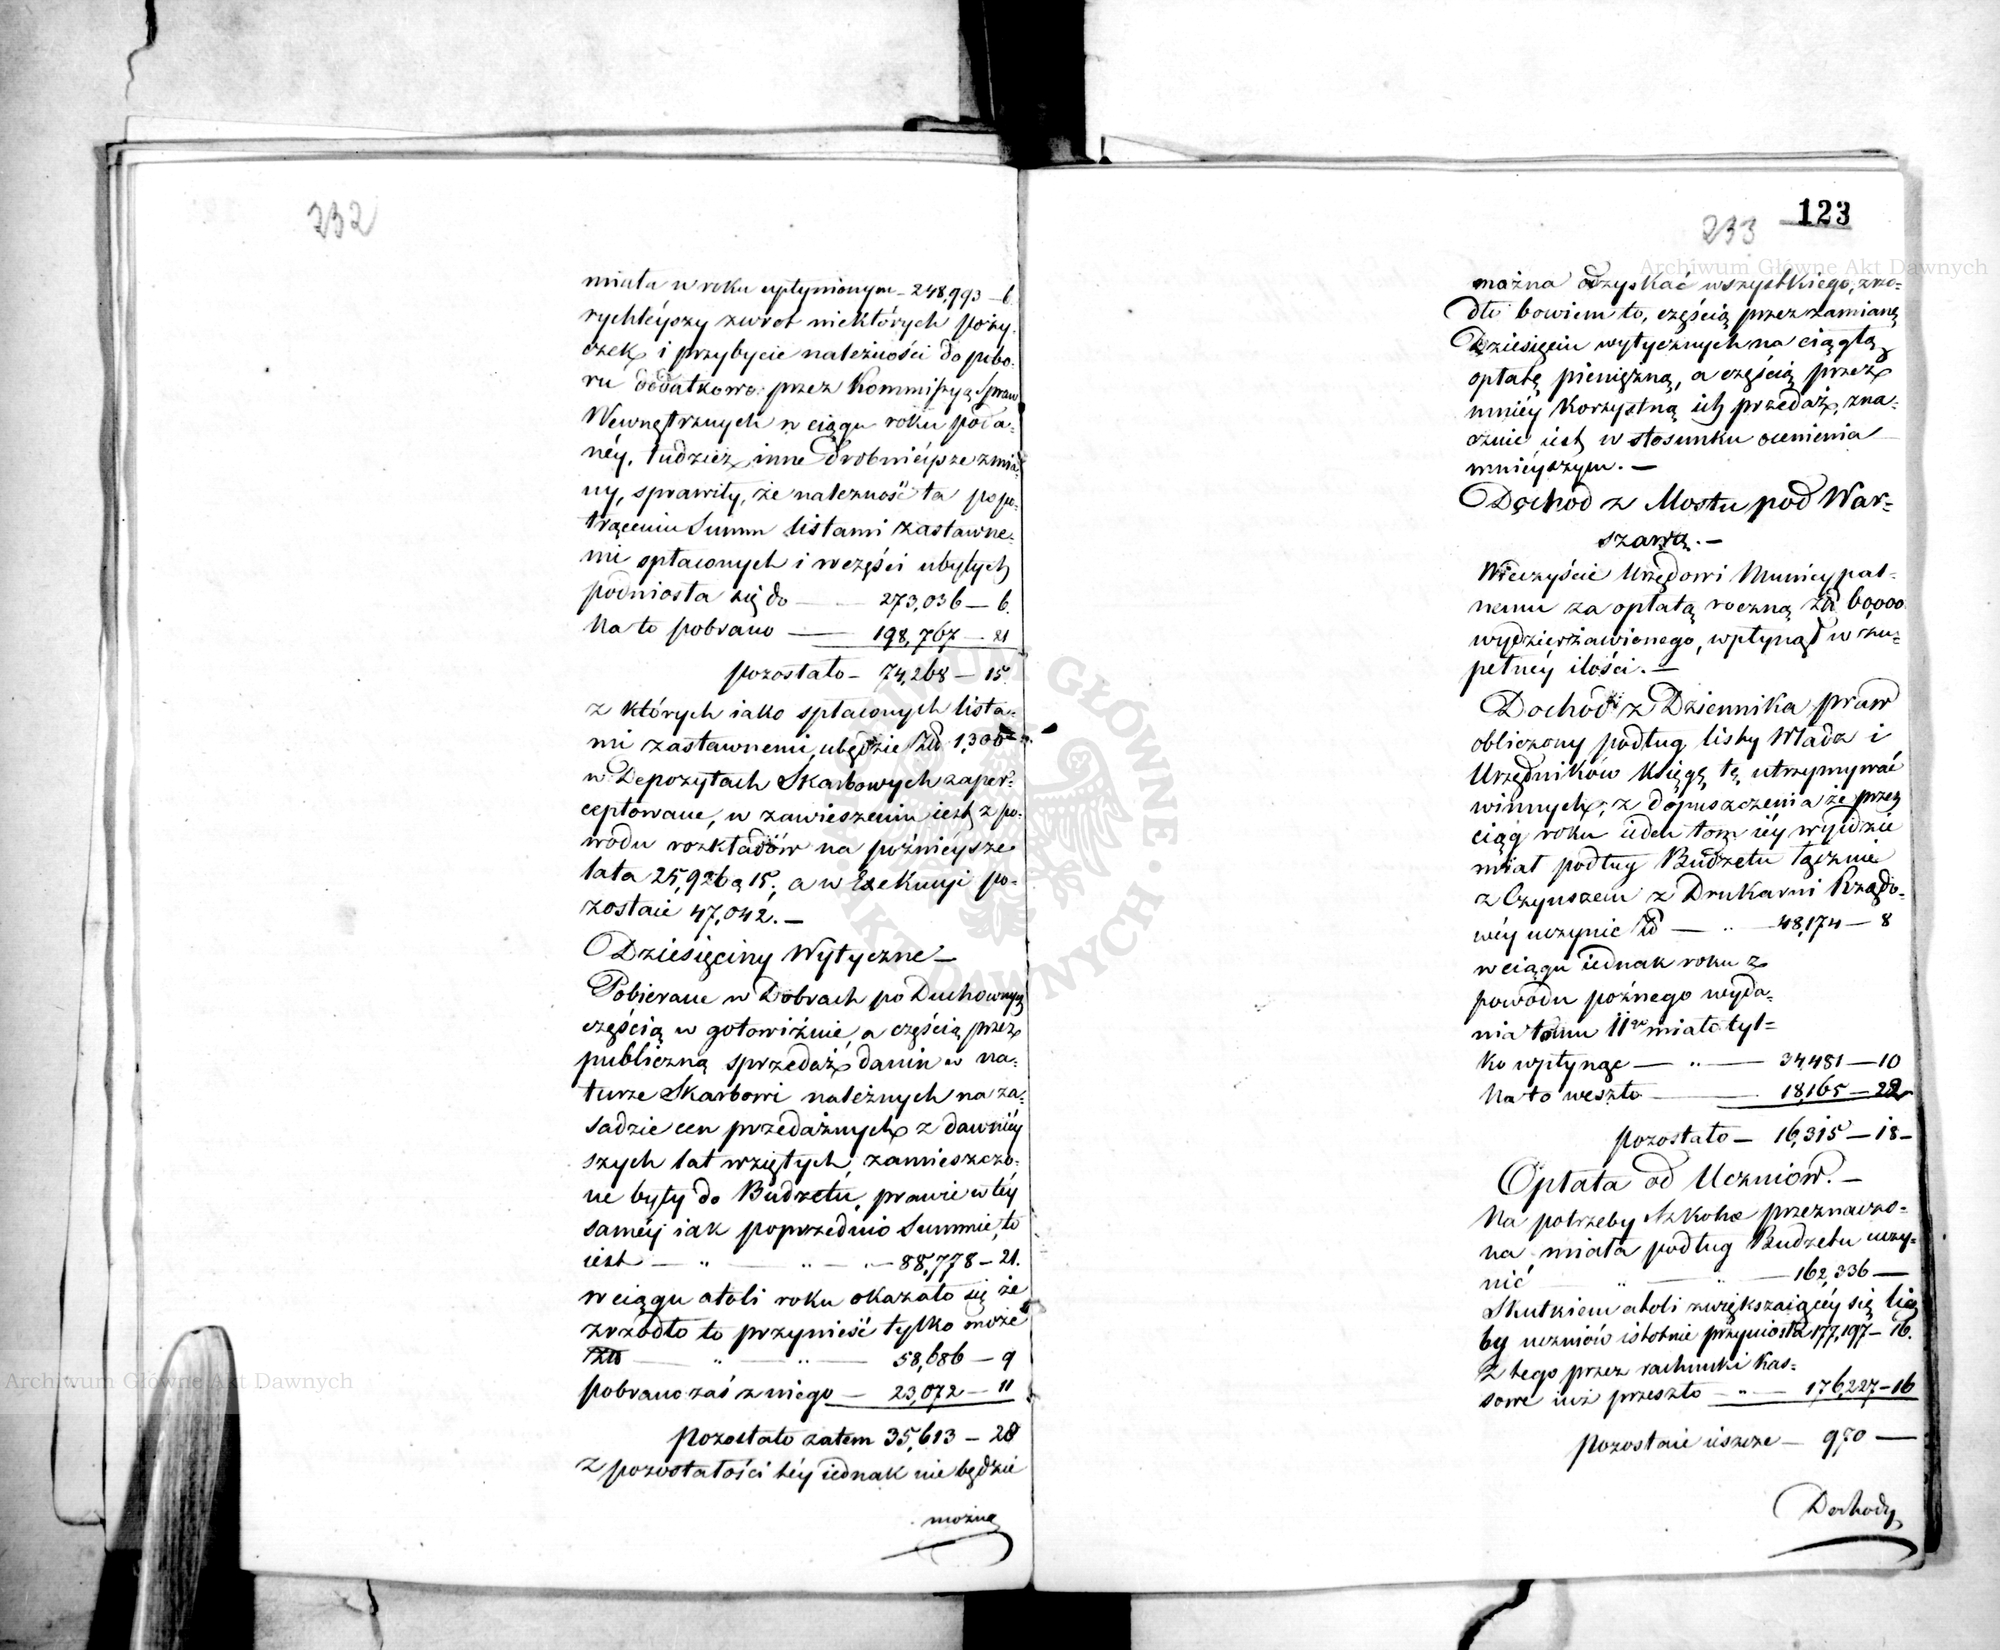 232
miała w roku upłynionym - 248,993 - 6.
rychleyszy zwrot niektórych poży-
czek i przybycie należności do pobo-
ru dodatkowo przez Kommissyą Spraw
Wewnętrznych w ciągu roku poda-
néy, tudzież inne drobnieysze zmia-
ny, sprawiły, że należność ta po po-
trąceniu Summ listami zastawne-
mi spłaconych i w części ubyłych
podniosła się do — 273,036 — 6.
Na to pobrano — 198,767 — 21
pozostało — 74,268 — 15.
z których iako spłaconych lista-
mi zastawnemi, ubędzie Złł 1,300
w Depozytach Skarbowych zaper-
ceptowane, w zawieszeniu iest z po-
wodu rozkładów na poźnieysze
lata 25,926 g 15; a w Exekucyi po-
zostaie 47,042. —
Dziesięciny Wytyczne —
Pobierane w Dobrach po Duchownych
częścią w gotowiźnie, a częścią przez
publiczną sprzedaż danin w na-
turze Skarbowi należnych na za-
sadzie cen przedażnych z dawniéy
szych lat wziętych, zamieszczo-
ne były do Budżetu, prawie w téy
saméy iak poprzednio Summie, to
iest — „ — „ — „ — 88,778 — 21.
w ciągu atoli roku okazało się że
zrzódło to przynieść tylko może
Złł — „ — „ — 58,686 — 9
pobrano zaś z niego — 23,072 — 11
Pozostało zatem 35,613 — 28
z pozostałości téy iednak nie będzie
można
123
233
można odzyskać wszystkiego, zrzó-
dło bowiem to, częścią przez zamianę
Dziesięcin wytycznych na ciągłą
opłatę pieniężną, a częścią przez
mniéy korzystną ich przedaż, zna-
cznie iest w stosunku ocenienia
mnieyszym. —
Dochód z Mostu pod War-
szawą. —
Wieczyście Urzędowi Municypal-
nemu za opłatą roczną Złł 60,000
wydzierżawionego, wpłynął w zu-
pełnéy ilości. —
Dochód z Dziennika praw
obliczony podług listy Władz i
Urzędników Księgę tę utrzymywać
winnych, z dopuszczenia że przez
ciąg roku ieden tom iéy wyidzie
miał podług Budżetu łącznie
z Czynszem z Drukarni Rządo-
wéy uczynić Złł — „ — 48,174 — 8
w ciągu iednak roku z
powodu poźnego wyda-
nia tomu 11go miało tyl-
ko wpłynąć — „ — 34,481 — 10
Na to weszło — 18,165 — 22
pozostało — 16,315 — 18 —
Opłata od Uczniów. —
Na potrzeby Szkolne przeznaczo-
na, miała podług Budżetu uczy-
nić „ „ — 162,336 —
Skutkiem atoli zwiększaiącéy się licz
by uczniów istotnie przyniosła 177,197 — 16.
Z tego przez rachunki Kas-
sowe iuż przeszło — „ — 176,227 — 16
Pozostaie ieszcze — 970 —
Dochody
Archiwum Główne Akt Dawnych
Archiwum Główne Akt Dawnych
ARCHIWUM GŁÓWNE · AKT DAWNYCH ·